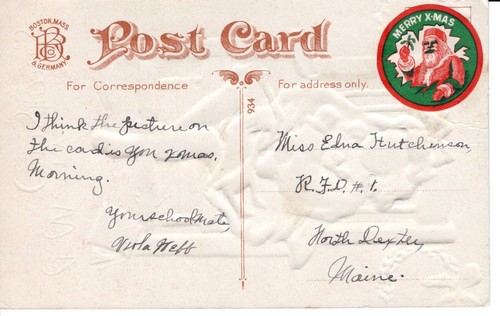 BOSTON, MASS.
B
& GERMANY.
Post Card
MERRY X-MAS
For Correspondence
For address only.
934
I think the picture on
the card is you xmas.
Morning.
Your school mate,
Viola Neff
Miss Edna Hutchinson,
R.F.D. #1.
North Dexter,
Maine.